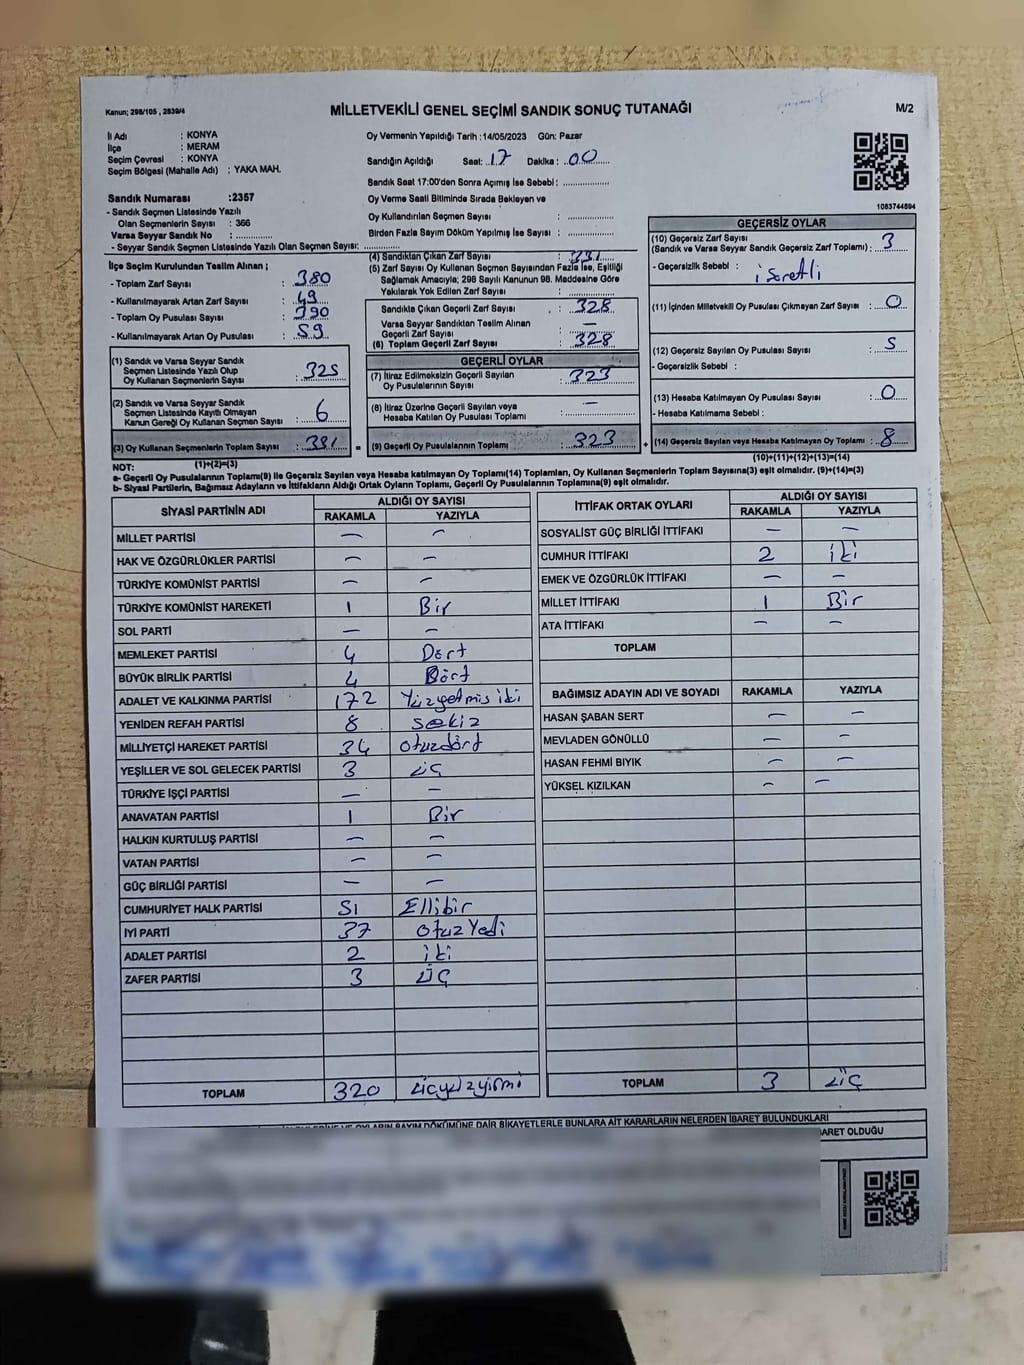 Kanun; 298/105 , 2839/4
MİLLETVEKİLİ GENEL SEÇİMİ SANDIK SONUÇ TUTANAĞI
M/2
İl Adı : KONYA
İlçe : MERAM
Seçim Çevresi : KONYA
Seçim Bölgesi (Mahalle Adı) : YAKA MAH.
Sandık Numarası :2357
- Sandık Seçmen Listesinde Yazılı
Olan Seçmenlerin Sayısı : 366
Varsa Seyyar Sandık No : ..............
- Seyyar Sandık Seçmen Listesinde Yazılı Olan Seçmen Sayısı: ..............
Oy Vermenin Yapıldığı Tarih :14/05/2023 Gün: Pazar
Sandığın Açıldığı Saat: 17 Dakika : 00
Sandık Saat 17:00'den Sonra Açımış İse Sebebi : ..............
Oy Verme Saati Bitiminde Sırada Bekleyen ve
Oy Kullandırılan Seçmen Sayısı : ..............
Birden Fazla Sayım Döküm Yapılmış İse Sayısı : ..............
1083744894
İlçe Seçim Kurulundan Teslim Alınan ;
- Toplam Zarf Sayısı : 380
- Kullanılmayarak Artan Zarf Sayısı : 49
- Toplam Oy Pusulası Sayısı : 390
- Kullanılmayarak Artan Oy Pusulası : 59
(1) Sandık ve Varsa Seyyar Sandık
Seçmen Listesinde Yazılı Olup
Oy Kullanan Seçmenlerin Sayısı : 325
(2) Sandık ve Varsa Seyyar Sandık
Seçmen Listesinde Kayıtlı Olmayan
Kanun Gereği Oy Kullanan Seçmen Sayısı : 6
(3) Oy Kullanan Seçmenlerin Toplam Sayısı : 331
(1)+(2)=(3)
(4) Sandıktan Çıkan Zarf Sayısı : 331
(5) Zarf Sayısı Oy Kullanan Seçmen Sayısından Fazla İse, Eşitliği
Sağlamak Amacıyla; 298 Sayılı Kanunun 98. Maddesine Göre
Yakılarak Yok Edilen Zarf Sayısı : ..............
Sandıkta Çıkan Geçerli Zarf Sayısı : 328
Varsa Seyyar Sandıktan Teslim Alınan
Geçerli Zarf Sayısı : —
(6) Toplam Geçerli Zarf Sayısı : 328
GEÇERLİ OYLAR
(7) İtiraz Edilmeksizin Geçerli Sayılan
Oy Pusulalarının Sayısı : 323
(8) İtiraz Üzerine Geçerli Sayılan veya
Hesaba Katılan Oy Pusulası Toplamı : —
= (9) Geçerli Oy Pusulalarının Toplamı : 323
GEÇERSİZ OYLAR
(10) Geçersiz Zarf Sayısı : 3
(Sandık ve Varsa Seyyar Sandık Geçersiz Zarf Toplamı)
- Geçersizlik Sebebi : işaretli
(11) İçinden Milletvekili Oy Pusulası Çıkmayan Zarf Sayısı : 0
(12) Geçersiz Sayılan Oy Pusulası Sayısı : 5
- Geçersizlik Sebebi :
(13) Hesaba Katılmayan Oy Pusulası Sayısı : 0
- Hesaba Katılmama Sebebi :
+ (14) Geçersiz Sayılan veya Hesaba Katılmayan Oy Toplamı : 8
(10)+(11)+(12)+(13)=(14)
NOT:
a- Geçerli Oy Pusulalarının Toplamı(9) ile Geçersiz Sayılan veya Hesaba katılmayan Oy Toplamı(14) Toplamları, Oy Kullanan Seçmenlerin Toplam Sayısına(3) eşit olmalıdır. (9)+(14)=(3)
b- Siyasi Partilerin, Bağımsız Adayların ve İttifakların Aldığı Ortak Oyların Toplamı, Geçerli Oy Pusulalarının Toplamına(9) eşit olmalıdır.
SİYASİ PARTİNİN ADI ALDIĞI OY SAYISI
RAKAMLA YAZIYLA
MİLLET PARTİSİ — —
HAK VE ÖZGÜRLÜKLER PARTİSİ — —
TÜRKİYE KOMÜNİST PARTİSİ — —
TÜRKİYE KOMÜNİST HAREKETİ 1 Bir
SOL PARTİ — —
MEMLEKET PARTİSİ 4 Dört
BÜYÜK BİRLİK PARTİSİ 4 Dört
ADALET VE KALKINMA PARTİSİ 172 Yüzyetmiş iki
YENİDEN REFAH PARTİSİ 8 sekiz
MİLLİYETÇİ HAREKET PARTİSİ 34 otuzdört
YEŞİLLER VE SOL GELECEK PARTİSİ 3 üç
TÜRKİYE İŞÇİ PARTİSİ — —
ANAVATAN PARTİSİ 1 Bir
HALKIN KURTULUŞ PARTİSİ — —
VATAN PARTİSİ — —
GÜÇ BİRLİĞİ PARTİSİ — —
CUMHURİYET HALK PARTİSİ 51 Ellibir
İYİ PARTİ 37 otuz Yedi
ADALET PARTİSİ 2 iki
ZAFER PARTİSİ 3 üÇ
TOPLAM 320 üçyüzyirmi
İTTİFAK ORTAK OYLARI ALDIĞI OY SAYISI
RAKAMLA YAZIYLA
SOSYALİST GÜÇ BİRLİĞİ İTTİFAKI — —
CUMHUR İTTİFAKI 2 iki
EMEK VE ÖZGÜRLÜK İTTİFAKI — —
MİLLET İTTİFAKI 1 Bir
ATA İTTİFAKI — —
TOPLAM
BAĞIMSIZ ADAYIN ADI VE SOYADI RAKAMLA YAZIYLA
HASAN ŞABAN SERT — —
MEVLADEN GÖNÜLLÜ — —
HASAN FEHMİ BIYIK — —
YÜKSEL KIZILKAN — —
TOPLAM 3 üÇ
VE OYLARIN SAYIM DÖKÜMÜNE DAİR ŞİKAYETLERLE BUNLARA AİT KARARLARIN NELERDEN İBARET BULUNDUKLARI
BARET OLDUĞU